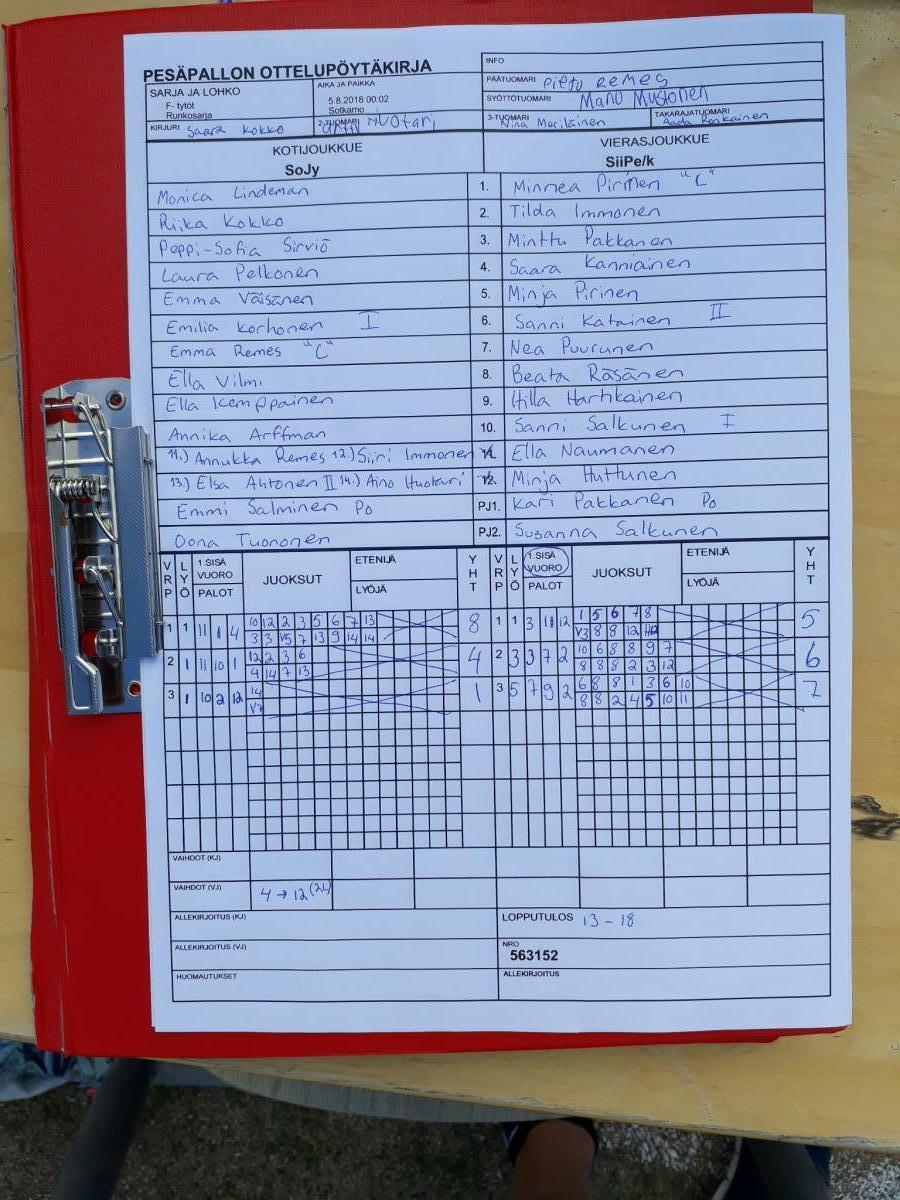 PESÄPALLON OTTELUPÖYTÄKIRJA
INFO
SARJA JA LOHKO
F- tytöt
Runkosarja
AIKA JA PAIKKA
5.8.2018 00:02
Sotkamo
PÄÄTUOMARI Remes
SYÖTTÖTUOMARI Manu Mustonen
KIRJURI Saara Kokko
2-TUOMARI
3-TUOMARI Nina Moilainen
TAKARAJATUOMARI Aada
KOTIJOUKKUE
SoJy
VIERASJOUKKUE
SiiPe/k
Monica Lindeman 1. Minnea Pirinen "C"
Riika Kokko 2. Tilda Immonen
Peppi-Sofia Sirviö 3. Minttu Pakkanen
Laura Pelkonen 4. Saara Kanniainen
Emma Väisänen 5. Minja Pirinen
Emilia Korhonen I 6. Sanni Katainen II
Emma Remes "C" 7. Nea Puurunen
Ella Vilmi 8. Beata Räsänen
Ella Kemppainen 9. Hilla Hartikainen
Annika Arffman 10. Sanni Salkunen I
11.) Annukka Remes 12.) Siiri Immonen Ella Naumanen
13.) Elsa Ahtonen II 14.) Aino Huotari 12. Minja Huttunen
Emmi Salminen Po PJ1. Kari Pakkanen Po
Oona Tuononen PJ2. Susanna Salkunen
VRP LYÖ 1.SISÄ VUORO PALOT JUOKSUT ETENIJÄ LYÖJÄ YHT VRP LYÖ 1.SISÄ VUORO PALOT JUOKSUT ETENIJÄ LYÖJÄ YHT
1 1 11 1 4 10 12 2 3 5 6 7 13 8 1 1 3 11 12 1 5 6 7 8 5
3 3 V5 7 13 9 14 14 V3 8 8 12
2 1 11 10 1 12 2 3 6 4 2 3 3 7 2 10 6 8 8 9 7 6
4 14 7 13 8 8 8 2 3 12
3 1 10 2 12 14 1 3 5 7 9 2 6 8 8 1 3 6 10 7
V7 8 8 2 4 5 10 11
VAIHDOT (KJ)
VAIHDOT (VJ) 4 → 12 (2L)
ALLEKIRJOITUS (KJ)
LOPPUTULOS 13 - 18
ALLEKIRJOITUS (VJ)
NRO
563152
HUOMAUTUKSET
ALLEKIRJOITUS